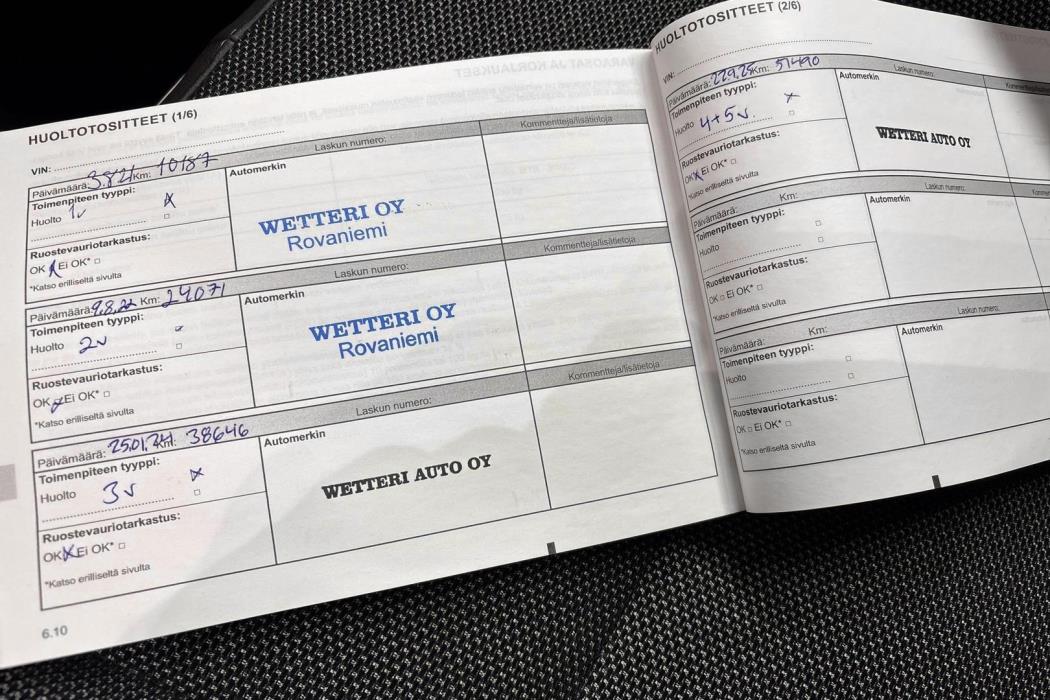 HUOLTOTOSITTEET (1/6)
VIN:
Päivämäärä: 3.8.21 Km: 10187 Laskun numero: Kommentteja/lisätietoja
Toimenpiteen tyyppi: Automerkin
Huolto 1v
WETTERI OY
Rovaniemi
Ruostevauriotarkastus:
OK Ei OK*
*Katso erilliseltä sivulta
Päivämäärä: 9.8.22 Km: 24071 Laskun numero: Kommentteja/lisätietoja
Toimenpiteen tyyppi: Automerkin
Huolto 2v
WETTERI OY
Rovaniemi
Ruostevauriotarkastus:
OK Ei OK*
*Katso erilliseltä sivulta
Päivämäärä: 25.01.24 Km: 38646 Laskun numero: Kommentteja/lisätietoja
Toimenpiteen tyyppi: Automerkin
Huolto 3v
WETTERI AUTO OY
Ruostevauriotarkastus:
OK Ei OK*
*Katso erilliseltä sivulta
6.10
HUOLTOTOSITTEET (2/6)
VIN:
Päivämäärä: 22.9.25 Km: 51490 Laskun numero:
Toimenpiteen tyyppi: Automerkin
Huolto 4+5v
WETTERI AUTO OY
Ruostevauriotarkastus:
OK Ei OK*
*Katso erilliseltä sivulta
Päivämäärä: Km: Laskun numero:
Toimenpiteen tyyppi: Automerkin
Huolto
Ruostevauriotarkastus:
OK Ei OK*
*Katso erilliseltä sivulta
Päivämäärä: Km: Laskun numero:
Toimenpiteen tyyppi: Automerkin
Huolto
Ruostevauriotarkastus:
OK Ei OK*
*Katso erilliseltä sivulta